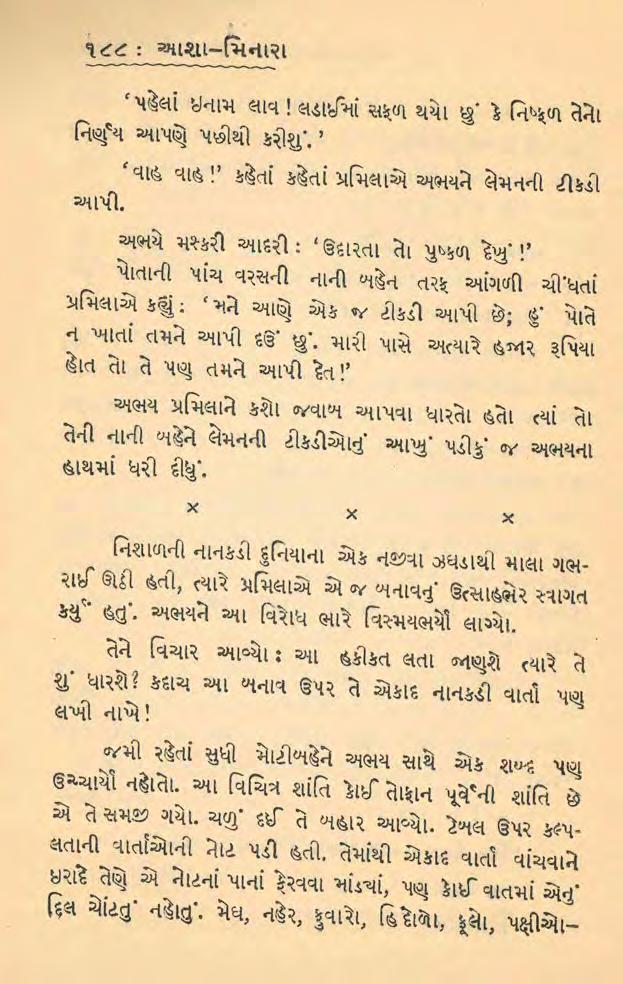 ૧૮૮ : આશા–મિનારા
‘પહેલાં ઇનામ લાવ ! લડાઈમાં સફળ થયો છું કે નિષ્ફળ તેનો
નિર્ણય આપણે પછીથી કરીશું.’
‘વાહ વાહ !’ કહેતાં કહેતાં પ્રમિલાએ અભયને લેમનની ટીકડી
આપી.
અભયે મશ્કરી આદરી : ‘ઉદારતા તો પુષ્કળ દેખું !’
પોતાની પાંચ વરસની નાની બહેન તરફ આંગળી ચીંધતાં
પ્રમિલાએ કહ્યું : ‘મને આણે એક જ ટીકડી આપી છે; હું પોતે
ન ખાતાં તમને આપી દઉં છું. મારી પાસે અત્યારે હજાર રૂપિયા
હોત તો તે પણ તમને આપી દેત !’
અભય પ્રમિલાને કશો જવાબ આપવા ધારતો હતો ત્યાં તો
તેની નાની બહેને લેમનની ટીકડીઓનું આખું પડીકું જ અભયના
હાથમાં ધરી દીધું.
× × ×
નિશાળની નાનકડી દુનિયાના એક નજીવા ઝઘડાથી માલા ગભ-
રાઈ ઊઠી હતી, ત્યારે પ્રમિલાએ એ જ બનાવનું ઉત્સાહભેર સ્વાગત
કર્યું હતું. અભયને આ વિરોધ ભારે વિસ્મયભર્યો લાગ્યો.
તેને વિચાર આવ્યો : આ હકીકત લતા જાણશે ત્યારે તે
શું ધારશે? કદાચ આ બનાવ ઉપર તે એકાદ નાનકડી વાર્તા પણ
લખી નાખે !
જમી રહેતાં સુધી મોટીબહેને અભય સાથે એક શબ્દ પણ
ઉચ્ચાર્યો નહોતો. આ વિચિત્ર શાંતિ કોઈ તોફાન પૂર્વેની શાંતિ છે
એ તે સમજી ગયો. ચળું દઈ તે બહાર આવ્યો. ટેબલ ઉપર કલ્પ-
લતાની વાર્તાઓની નોટ પડી હતી. તેમાંથી એકાદ વાર્તા વાંચવાને
ઇરાદે તેણે એ નોટનાં પાનાં ફેરવવા માંડ્યાં, પણ કોઈ વાતમાં એનું
દિલ ચોંટતું નહોતું. મેઘ, નહેર, કુવારો, હિંદોળા, ફૂલો, પક્ષીઓ–